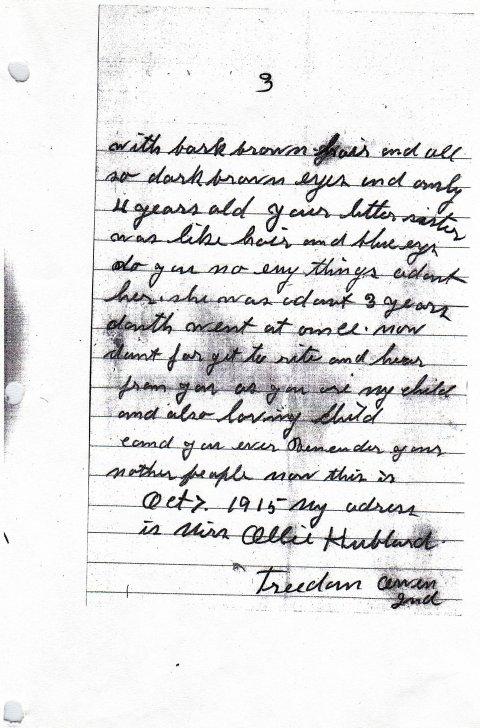 3
with bark brown hair and all
so dark brown eyes and only
4 years old your litter sister
was like hair and blue eys
do you no eny things adout
her. she was adout 3 years
danth went at omce. now
dont for get to rite and hear
from you as you are my child
and also loving child
cand you ever Remender your
mother people now this is
Oct 7. 1915 My adress
is Miss Ollie Hubbard
Freedom
Ind